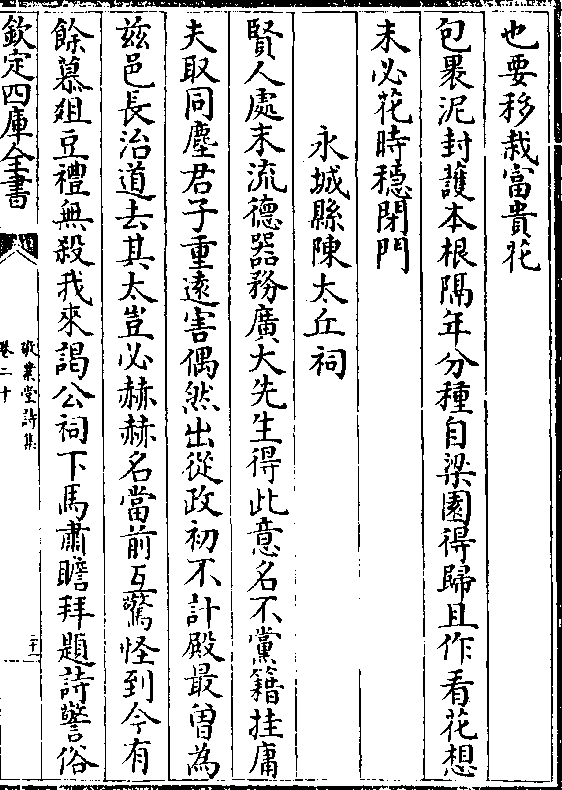 也要移栽富貴花
包裹泥封護本根隔年分種自梁園得歸且作看花想
未必花時穩閉門
永城縣陳太丘祠
賢人處末流德器務廣大先生得此意名不黨籍挂庸
夫取同塵君子重遠害偶然出從政初不計殿最曾為
兹邑長治道去其太豈必赫赫名當前互驚怪到今有
餘慕俎豆禮無殺我來謁公祠下馬肅瞻拜題詩警俗
欽定四庫全書
敬業堂詩集
卷二十